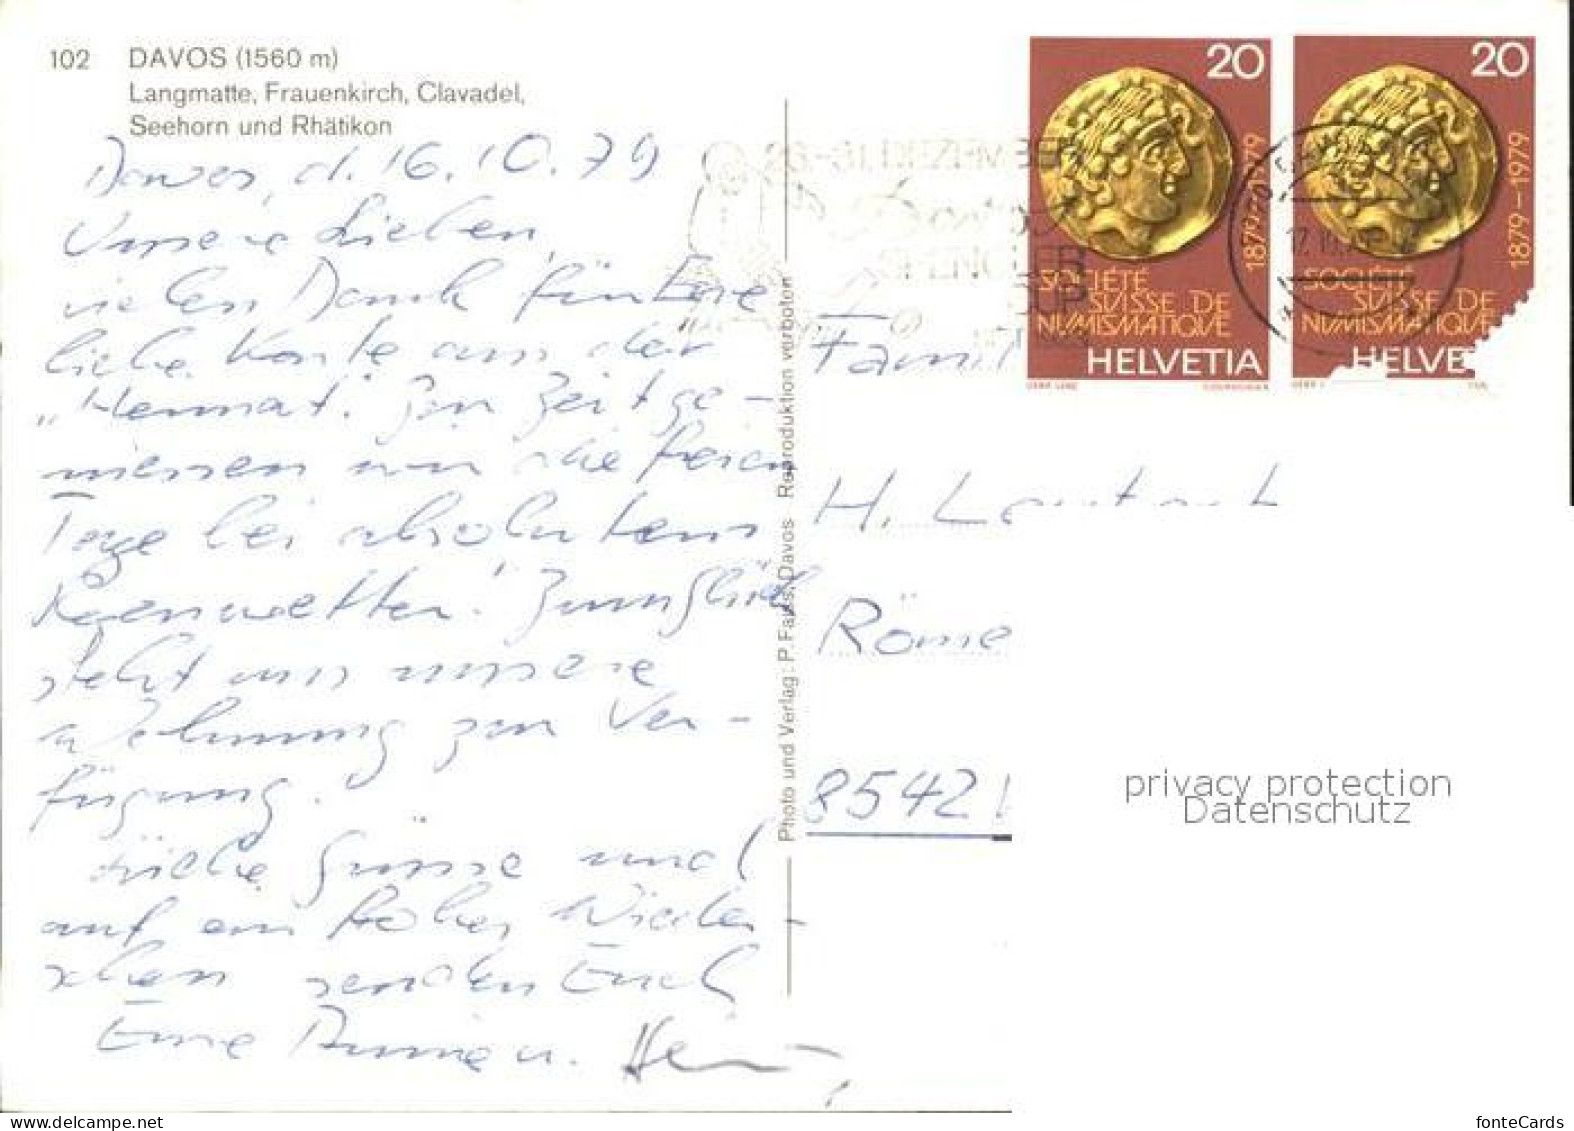 102 DAVOS (1560 m)
Langmatte, Frauenkirch, Clavadel,
Seehorn und Rhätikon
Davos, d. 16.10.79
Unsere Lieben,
vielen Dank für Eure
liebe Karte aus der
"Heimat". Zur Zeit ge-
niessen wir die freien
Tage bei absolutem
Regenwetter! Zum Glück
steht uns unsere
Wohnung zur Ver-
fügung.
Liebe Grüsse und
auf ein frohes Wieder-
sehen senden Euch
Eure Annie u. Hein
Photo und Verlag: P. Faiss, Davos Reproduktion verboten
20
1879-1979
SOCIÉTÉ
SUISSE DE
NUMISMATIQUE
HELVETIA
20
1879-1979
SOCIÉTÉ
SUISSE DE
NUMISMATIQUE
HELVE
26.-31. DEZEMBER
SPENGLER
CUP
Famil
H. L
Röme
8542
privacy protection
Datenschutz
fonteCards